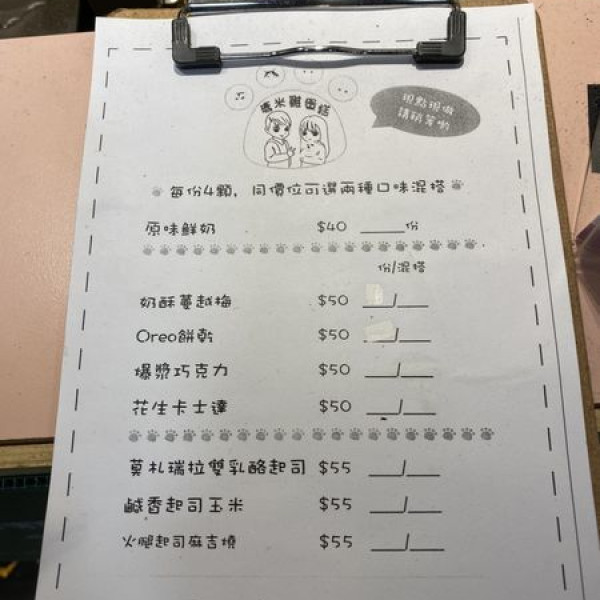 米雞蛋糕
現點現做
請稍等喲
每份4顆,同價位可選兩種口味混搭
原味鮮奶 $40 ____份
份/混搭
奶酥蔓越梅 $50 __/__
Oreo餅乾 $50 __/__
爆漿巧克力 $50 __/__
花生卡士達 $50 __/__
莫札瑞拉雙乳酪起司 $55 __/__
鹹香起司玉米 $55 __/__
火腿起司麻吉燒 $55 __/__